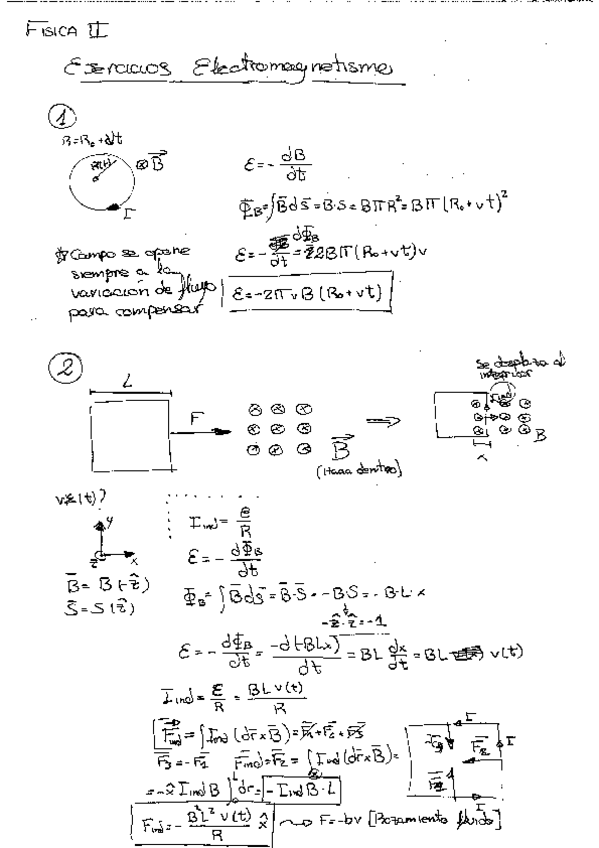 FISICA II
Ejercicios Electromagnetismo
1
R=R₀+vt
R(t)
⊗B⃗
I
ε = - dB/dt
Φ_B = ∫B̄ds̄ = B·S = BπR² = Bπ(R₀+vt)²
* Campo se opone
siempre a la
variación de flujo
para compensar
ε = - dΦ_B/dt = 2Bπ(R₀+vt)v
ε = -2πvB(R₀+vt)
2
L
F
B⃗
(Hacia dentro)
⇒
Se desplaza al
interior
I ind
B
x
I_ind = ε/R
ε = - dΦ_B/dt
y
x
z
B̄ = B(-ẑ)
S̄ = S(ẑ)
Φ_B = ∫B̄ds̄ = B̄·S̄ = -B·S = -B·L·x
-ẑ·ẑ = -1
ε = - dΦ_B/dt = -d(-BLx)/dt = BL dx/dt = BL v(t)
I_ind = ε/R = BLv(t)/R
F_ind = ∫I_ind(dr̄×B̄) = F̄₁+F̄₂+F̄₃
F̄₃ = -F̄₁ F̄_ind = F̄₂ = ∫I_ind(dr̄×B̄) =
= -x̂ I_ind B ∫dr = -I_ind B·L
F_ind = - B²L²v(t)/R x̂ ⇝ F = -bv [Rozamiento fluido]
I
F̄₂
I
I